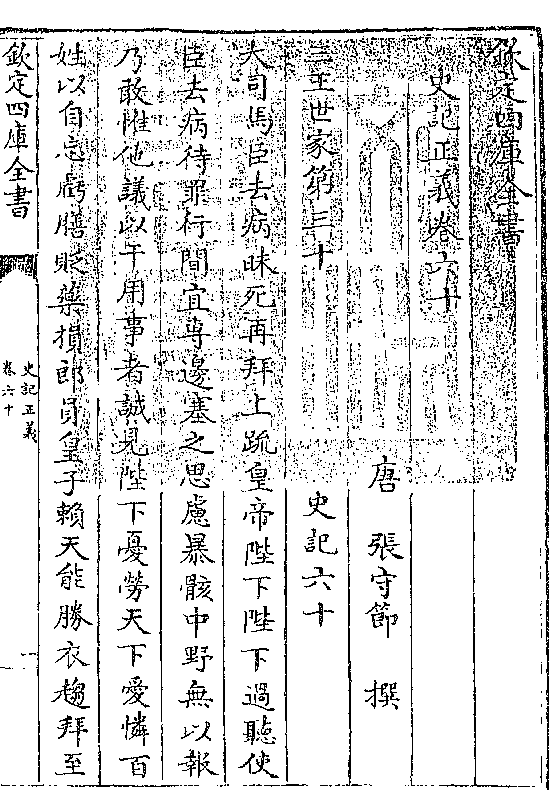 欽定四庫全書
史記正義卷六十
唐 張守節 撰
三王世家第三十 史記六十
大司馬臣去病昧死再拜上疏皇帝陛下陛下過聽使
臣去病待罪行間宜専邊塞之思慮暴骸中野無以報
乃敢惟他議以干用事者誠見陛下憂勞天下愛憐百
姓以自忘虧膳貶樂損郎員皇子賴天能勝衣趨拜至
欽定四庫全書
史記正義
卷六十
一